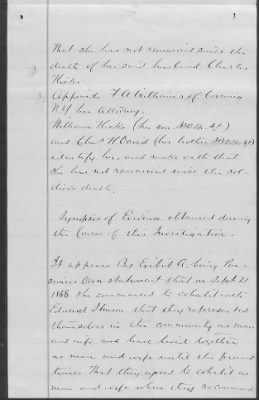 That she has not remarried since the
death of her said husband Charles
Hicks.
Appoints F A Williams of Corning
N.Y her Attorney.
William Hicks (her son
and Chas H
identify her and make oath that
she has not remarried since the sol-
diers death.
Synopsis of Evidence obtained during
the Course of this Investigation.
It appears By Exhibit A, being Pen-
sioners Own statement that on Sept 21
1868 She commenced to cohabit with
Edward that they represented
themselves in the community as man
and wife and have lived together
as man and wife until the present
time. That they agreed to cohabit as
man and wife when they commenced